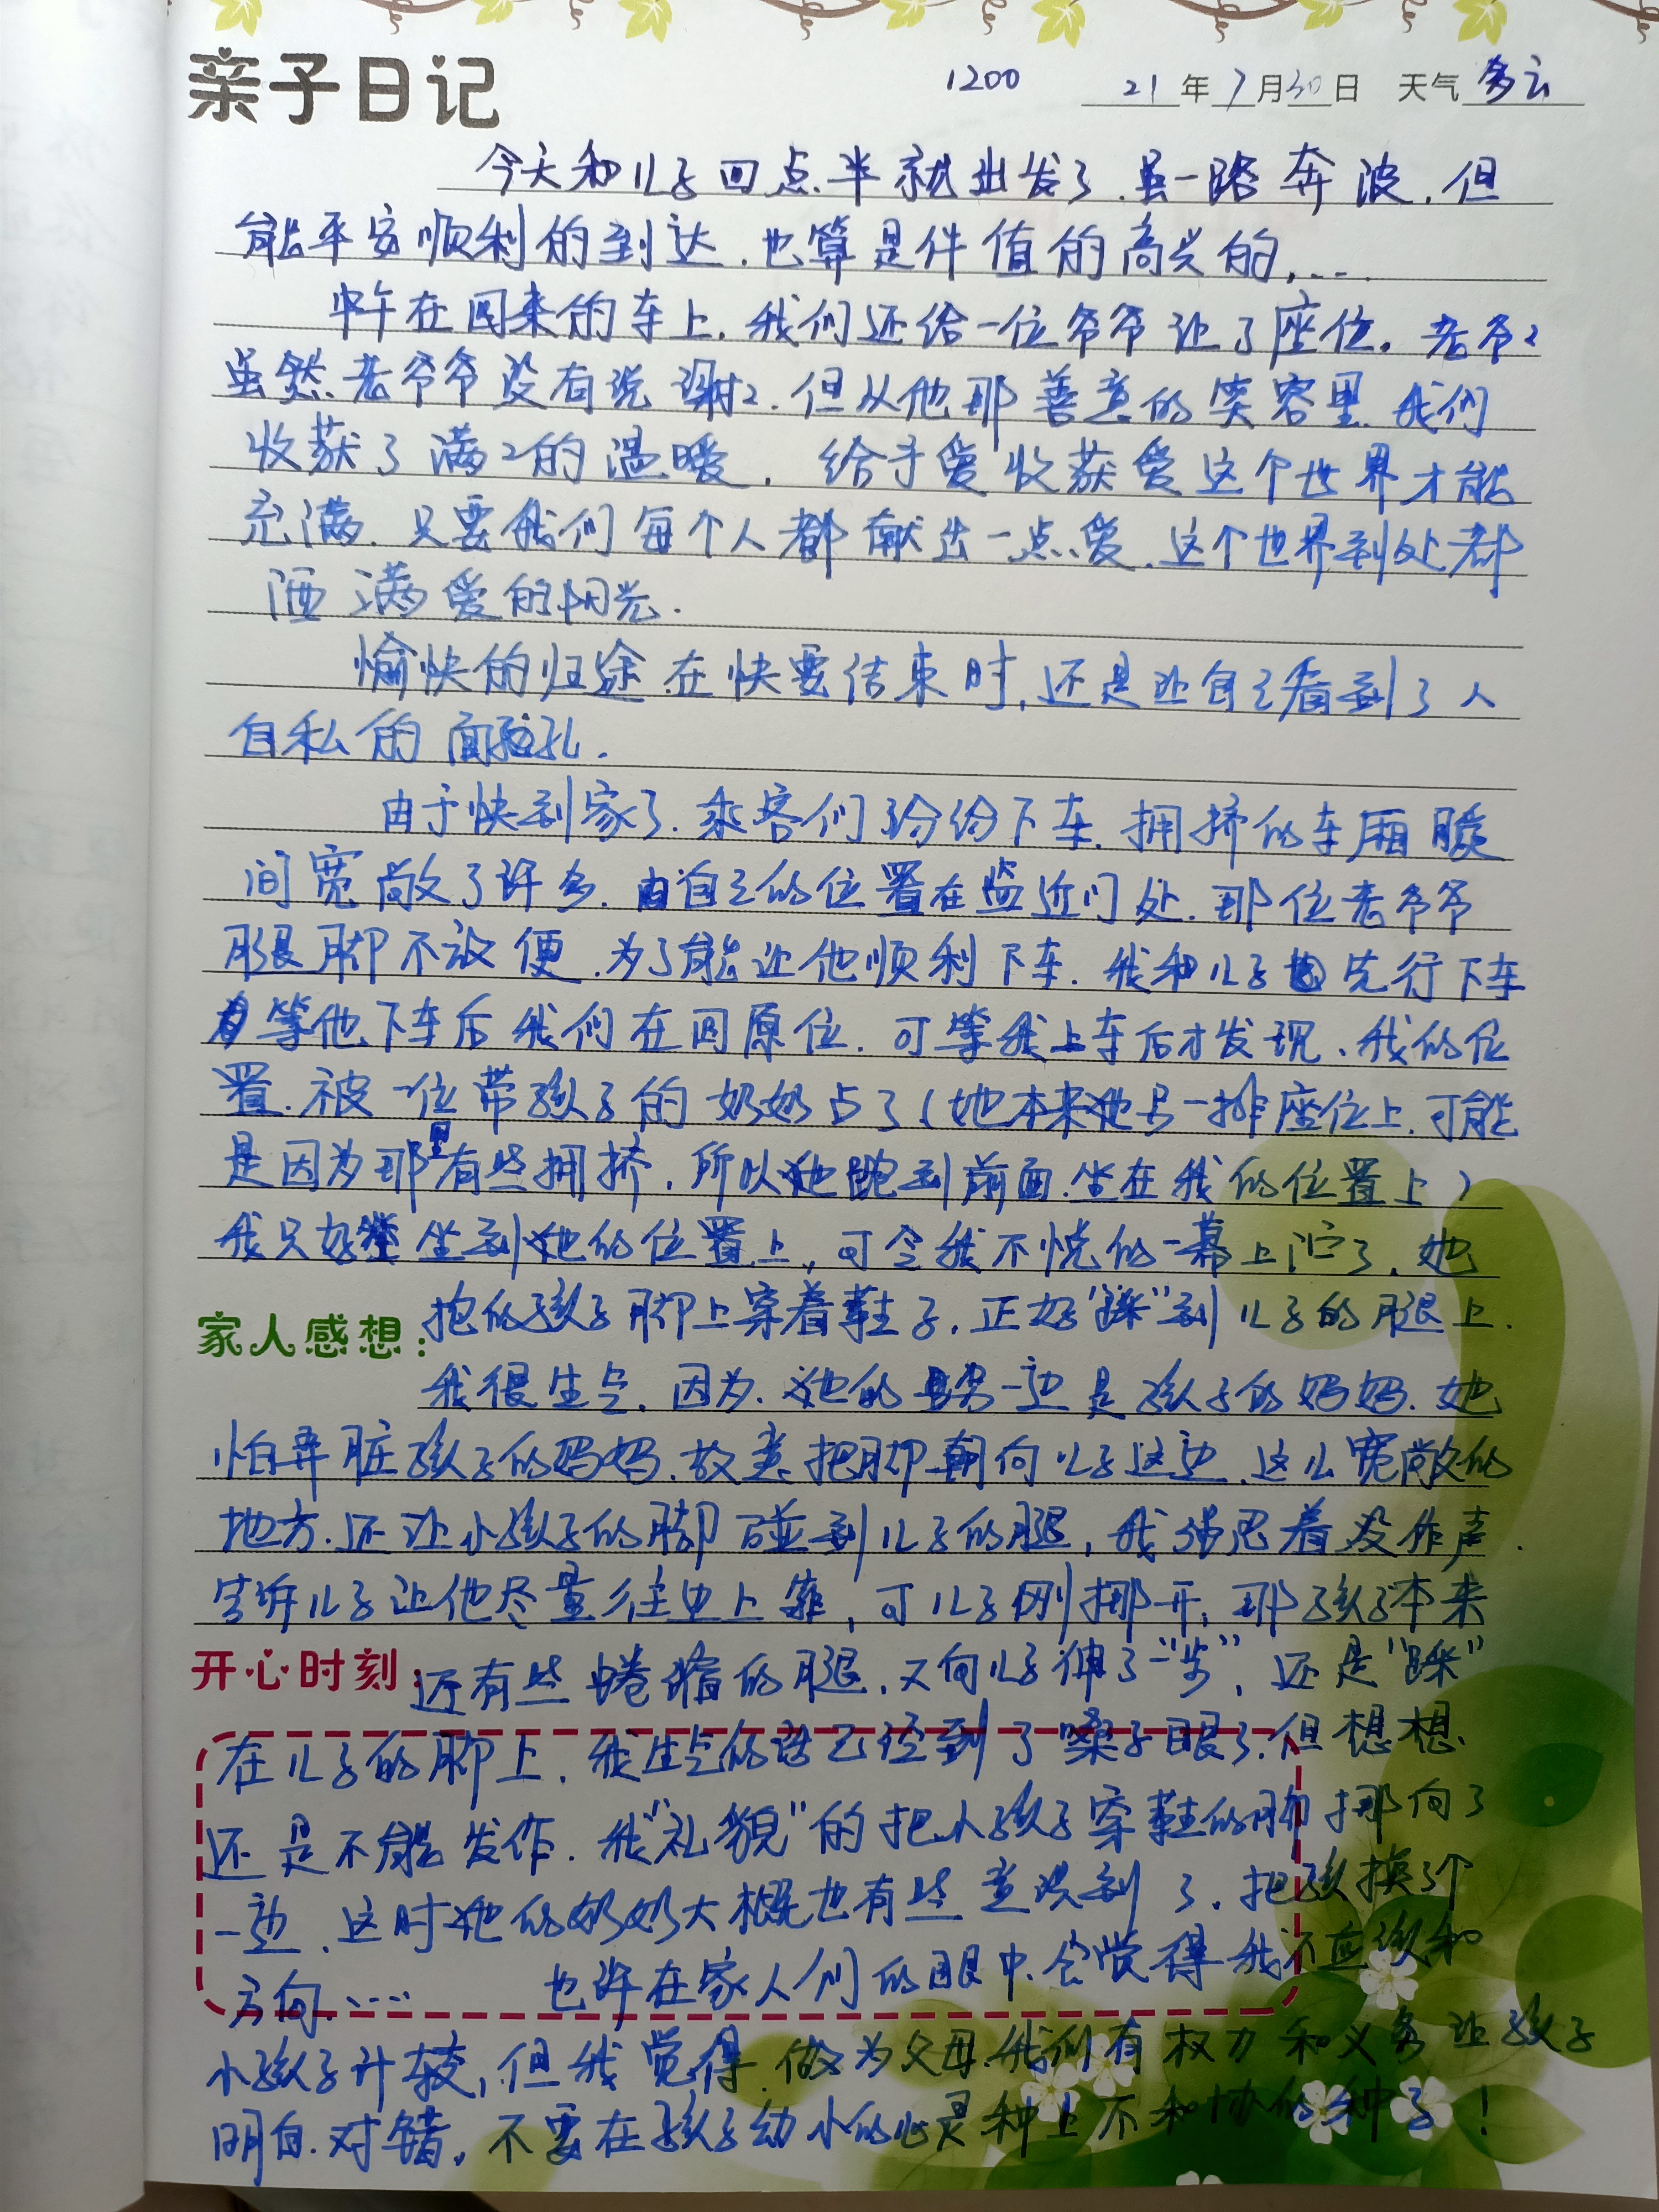 亲子日记 1200 21年7月30日 天气 多云
今天和儿子四点半就出发了.虽一路奔波.但
能平安顺利的到达.也算是件值的高兴的,...
中午在回来的车上.我们还给一位爷爷让了座位。老爷2
虽然老爷爷没有说谢2.但从他那善意的笑容里.我们
收获了满2的温暖. 给予爱收获爱这个世界才能
充满.只要我们每个人都献出一点爱.这个世界到处都
洒满爱的阳光.
愉快的归途.在快要结束时,还是让自己看到了人
自私的面孔.
由于快到家了.乘客们纷纷下车.拥挤的车厢瞬
间宽敞了许多.自己的位置在临近门处.那位老爷爷
腿脚不放便.为了能让他顺利下车.我和儿子先行下车
等他下车后我们在回原位.可等我上车后才发现、我的位
置.被一位带孩子的奶奶占了(她本来她另一排座位上.可能
是因为那里有些拥挤.所以她跑到前面.坐在我的位置上)
我只好坐到她的位置上,可令我不悦的一幕上演了.她
家人感想: 抱的孩子脚上穿着鞋子.正好"踩"到儿子的腿上.
我很生气.因为.她的另一边是孩子的妈妈.她
怕弄脏孩子的妈妈.故意把脚朝向儿子这边.这么宽敞的
地方.还让小孩子的脚碰到儿子的腿,我强忍着没作声.
告诉儿子让他尽量往边上靠,可儿子刚挪开,那孩子本来
开心时刻: 还有些蜷缩的腿.又向儿子伸了一"步",还是"踩"
在儿子的脚上.我生气的话已经到了嗓子眼了.但想想.
还是不能发作.我"礼貌"的把小孩子穿鞋的脚挪向了
一边.这时她的奶奶大概也有些意识到了.把孩换了个
方向.....  也许在家人们的眼中.会觉得我不应该和
小孩子计较,但我觉得.做为父母.我们有权力和义务让孩子
明白.对错。不要在孩子幼小的心灵种上不和协的种子!